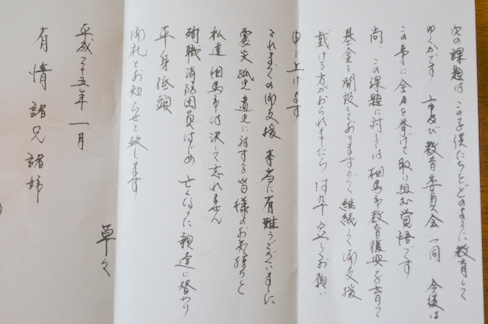 次の課題は この子供たちをどのように教育して
ゆくかです 市及び教育委員会一同 今後は
この事に全力を挙げて取り組む覚悟です
尚 この課題に対しては相馬市教育復興子育て
基金を開設しておりますので 継続して御支援
戴ける方がおられましたら 何卒宜しくお願い
申し上げます
これまでの御支援 本当に有難うございました
震災孤児遺児に対する皆様のお気持ちを
私達相馬市は決して忘れません
殉職消防団員はじめ 亡くなった親達に替わり
平身低頭
御礼とお知らせと致します
草々
平成二十五年 一月
有情諸兄諸姉